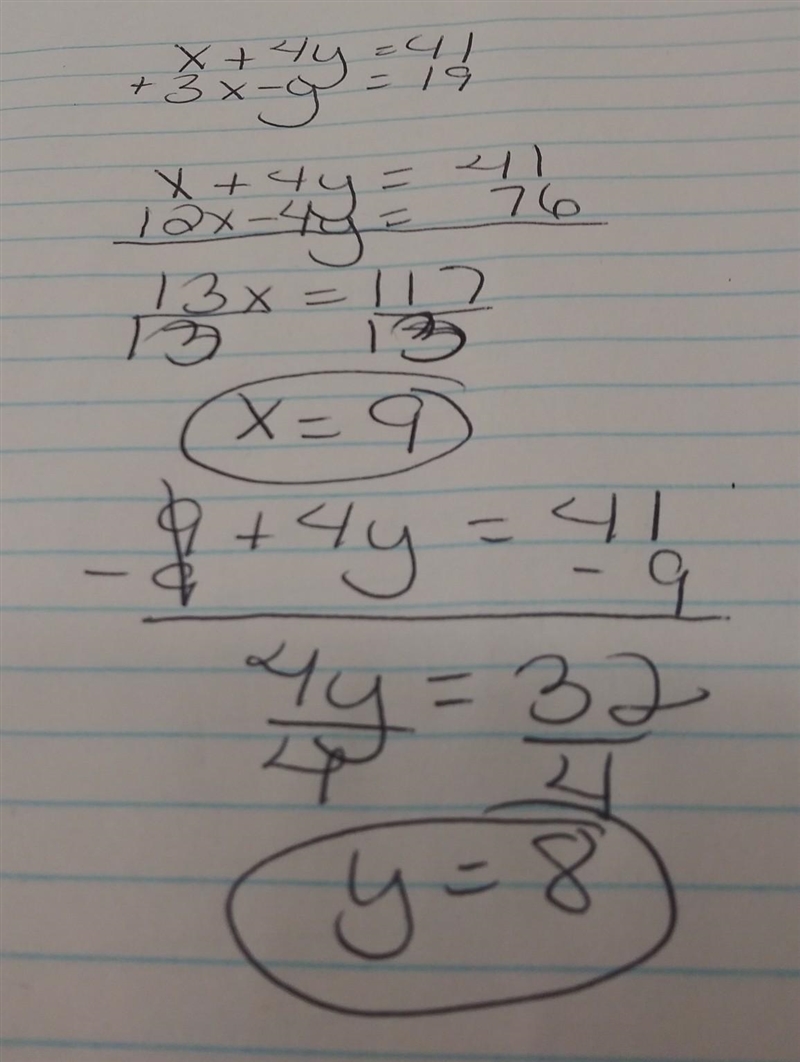 x + 4y = 41
+ 3x - y = 19
x + 4y = 41
12x - 4y = 76
13x = 117
13 13
x = 9
9 + 4y = 41
- 9 - 9
4y = 32
4 4
y = 8